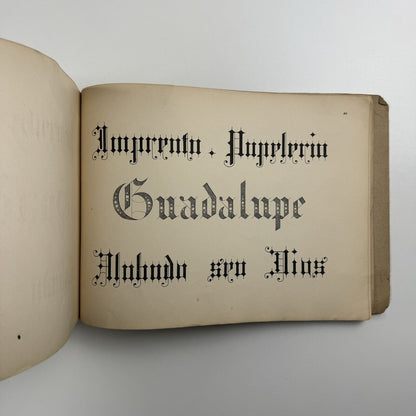 Imprenta . Papeleria
Guadalupe
Alabado sea Dios